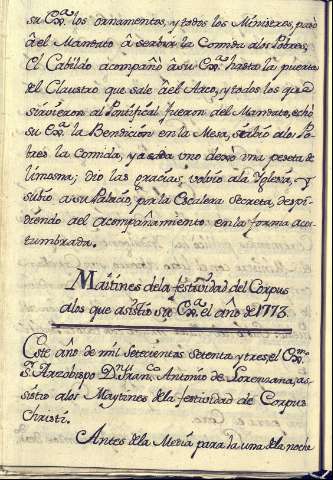 su Ex.ª los ornamentos, y todos los Ministros, pasó
â el Mandato â serbir la Comida alos Pobres,
El Cabildo acompañó âsu Ex.ª hasta la puerta
del Claustro que sale âel Arco, y todos los que
sirvieron al Pontifical fueron del Mandato, echó
su Ex.ª la Bendicion en la Mesa, serbió alos Po-
bres la Comida, y acada uno dexó vna peseta de
limosna; dio las gracias, volvio ala Yglesia, y
subio a su Palacio por la Escalera Secreta, despi-
diendo del acompañamiento en la forma acos-
tumbrada.
Maitines dela festividad del Corpus
alos que asistio su Ex.ª el año de 1773.
Este año de mil Setecientos Setenta y tres, el Ex.mo
S.r Arzobispo D.n Fran.co Antonio de Lorenzana, as-
sistio alos Maytines dela festividad de Corpus
Christi.
Antes dela Media para la una dela noche